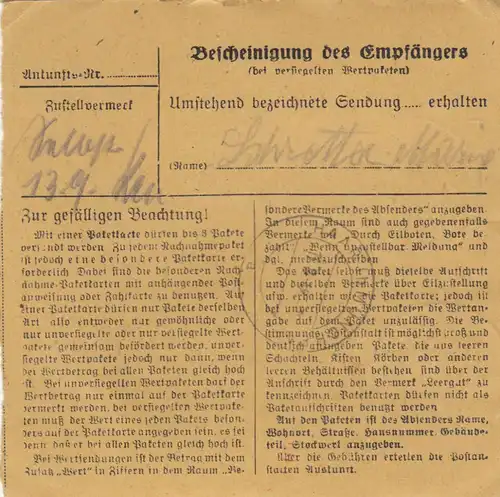 Bescheinigung des Empfängers
(bei versiegelten Wertpaketen)
Ankunfts-Nr.
Zustellvermerk
Umstehend bezeichnete Sendung ..... erhalten
13.9.
(Name) Marie
Zur gefälligen Beachtung!
Mit einer Paketkarte dürfen bis 3 Pakete
versandt werden. Zu jedem Nachnahmepaket
ist jedoch eine besondere Paketkarte er-
forderlich. Dabei sind die besonderen Nach-
nahme-Paketkarten mit anhängender Post-
anweisung oder Zahlkarte zu benutzen. Auf
einer Paketkarte dürfen nur Pakete derselben
Art also entweder nur gewöhnliche oder
nur unversiegelte oder nur versiegelte Wert-
pakete gemeinsam befördert werden, unver-
siegelte Wertpakete jedoch nur dann, wenn
der Wertbetrag bei allen Paketen gleich hoch
ist. Bei unversiegelten Wertpaketen darf der
Wertbetrag nur einmal auf der Paketkarte
vermerkt werden, bei versiegelten Wertpake-
ten muß der Wert eines jeden Pakets beson-
ders auf der Paketkarte angegeben sein, es sei
denn, daß er bei allen Paketen gleich hoch ist.
Bei Wertsendungen ist der Betrag mit dem
Zusatz „Wert“ in Ziffern in dem Raum „Be-
sondere Vermerke des Absenders“ anzugeben.
In diesem Raum sind auch gegebenenfalls
Vermerke wie „Durch Eilboten, Bote be-
zahlt“, „Wenn unzustellbar, Meldung“ und
dgl. niederzuschreiben.
Das Paket selbst muß dieselbe Aufschrift
und dieselben Vermerke über Eilzustellung
usw. erhalten wie die Paketkarte; jedoch ist
bei unversiegelten Wertpaketen die Wertan-
gabe auf dem Paket unzulässig. Die Be-
stimmungs-Postanstalt ist möglichst groß und
deutlich anzugeben. Pakete, die aus leeren
Schachteln, Kisten, Körben oder anderen
leeren Behältnissen bestehen, sind über der
Aufschrift durch den Vermerk „Leergut“ zu
kennzeichnen. Paketkarten dürfen nicht als
Paketaufschriften benutzt werden.
Auf den Paketen ist des Absenders Name,
Wohnort, Straße, Hausnummer, Gebäude-
teil, Stockwerk anzugeben.
Über die Gebühren erteilen die Postan-
stalten Auskunft.